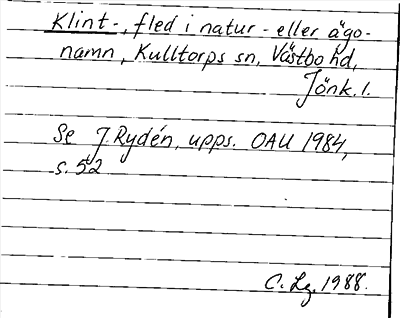 Klint-, fled i natur- eller ägo-
namn, Kulltorps sn, Västbo hd,
Jönk. l.
Se J. Rydén, upps. OAU 1984,
s. 52
C. Lg. 1988.